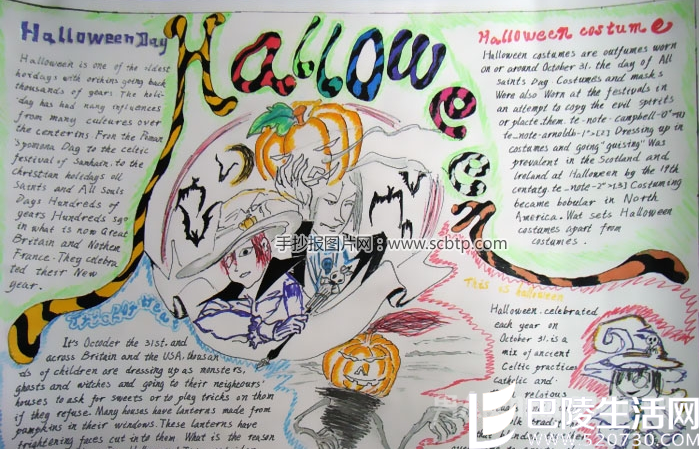 Halloween Day
Halloween is one of the oldest
hovidays with orthins going back
thousands of gears. The holi-
day has had nany influences
from many cultures over
the centerins. Fron the Poman
Spomona Dag to the celtic
festival of Samhain. to the
christtian holedays oll
saints and All Souls
Days Hundreds of
gears Hundreds sgo
in what is now Great
Britain and Nothen
France. They celebra
ted their New
gear.
Halloween
Halloween costume
Halloween costumes are outfumes worn
on or around October 31. the day of All
saints Dag Costumes and masks
Were also Worn at the festivals in
an attempt to copy the evil spirits
or placte them. te-note-campbell-0"
te_note-arnoldb-1">[2] Dressing up in
costumes and going "guising" Was
prevalent in the Scotland and
Ireland at Halloween by the 19th
centaty. te_note-2">[3] Costuming
became bobular in North
America. Wat sets Halloween
costumes apart from
costumes.
手抄报图片网:www.scbtp.com
trick or treat
It's Octoder the 31st. and
across Britain and the USA, thousan
ds of children are dressing up as monsters,
ghosts and witches and going to their neigeours'
houses to ask for sweets or to play tricks on them
if they refuse. Many houses have lanterns made from
pumpkins in their windows. These lanterns have
frightening faces cut into them. What is the reason
This is haloween
Halloween. celebrated
each year on
October 31. is a
mix of ancient
Celtic practices
catholic and
relotous
folk tradit
巴陵生活网
www.520730.com